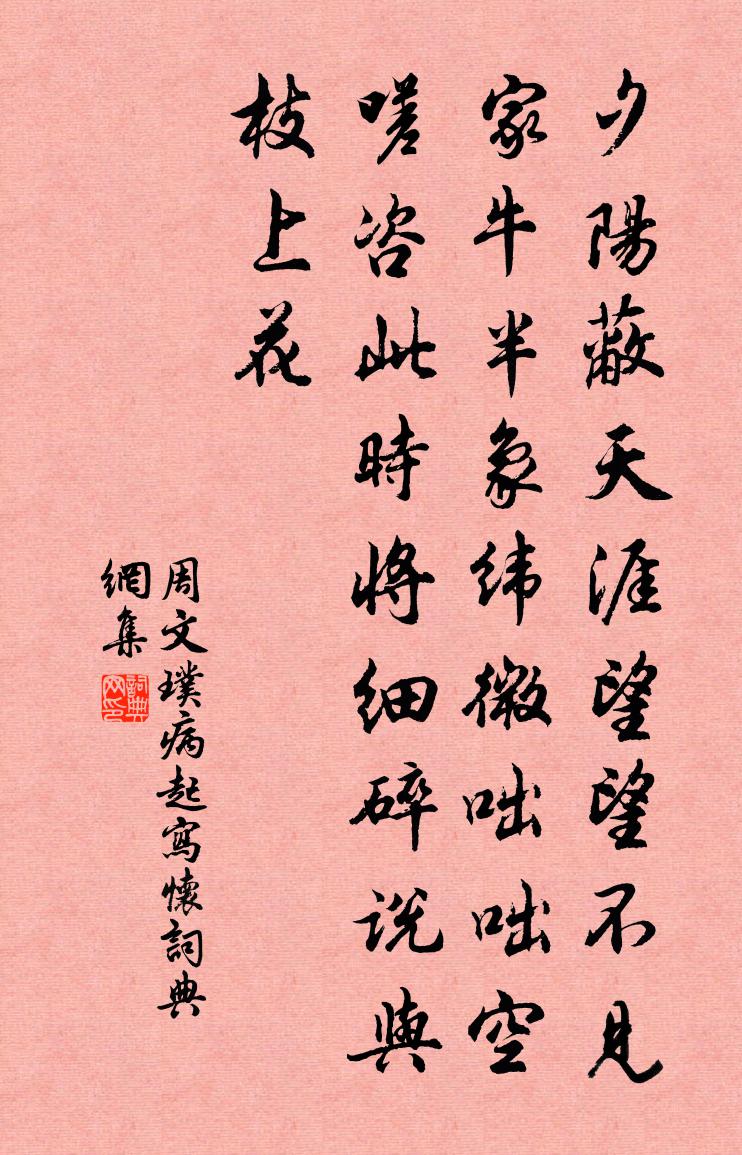 夕陽蔽天涯望望不見
家牛半象緯微咄咄空
嗟咨此時將細碎説與
枝上花
周文璞病起寫懷詞典
網集
詞典
网印